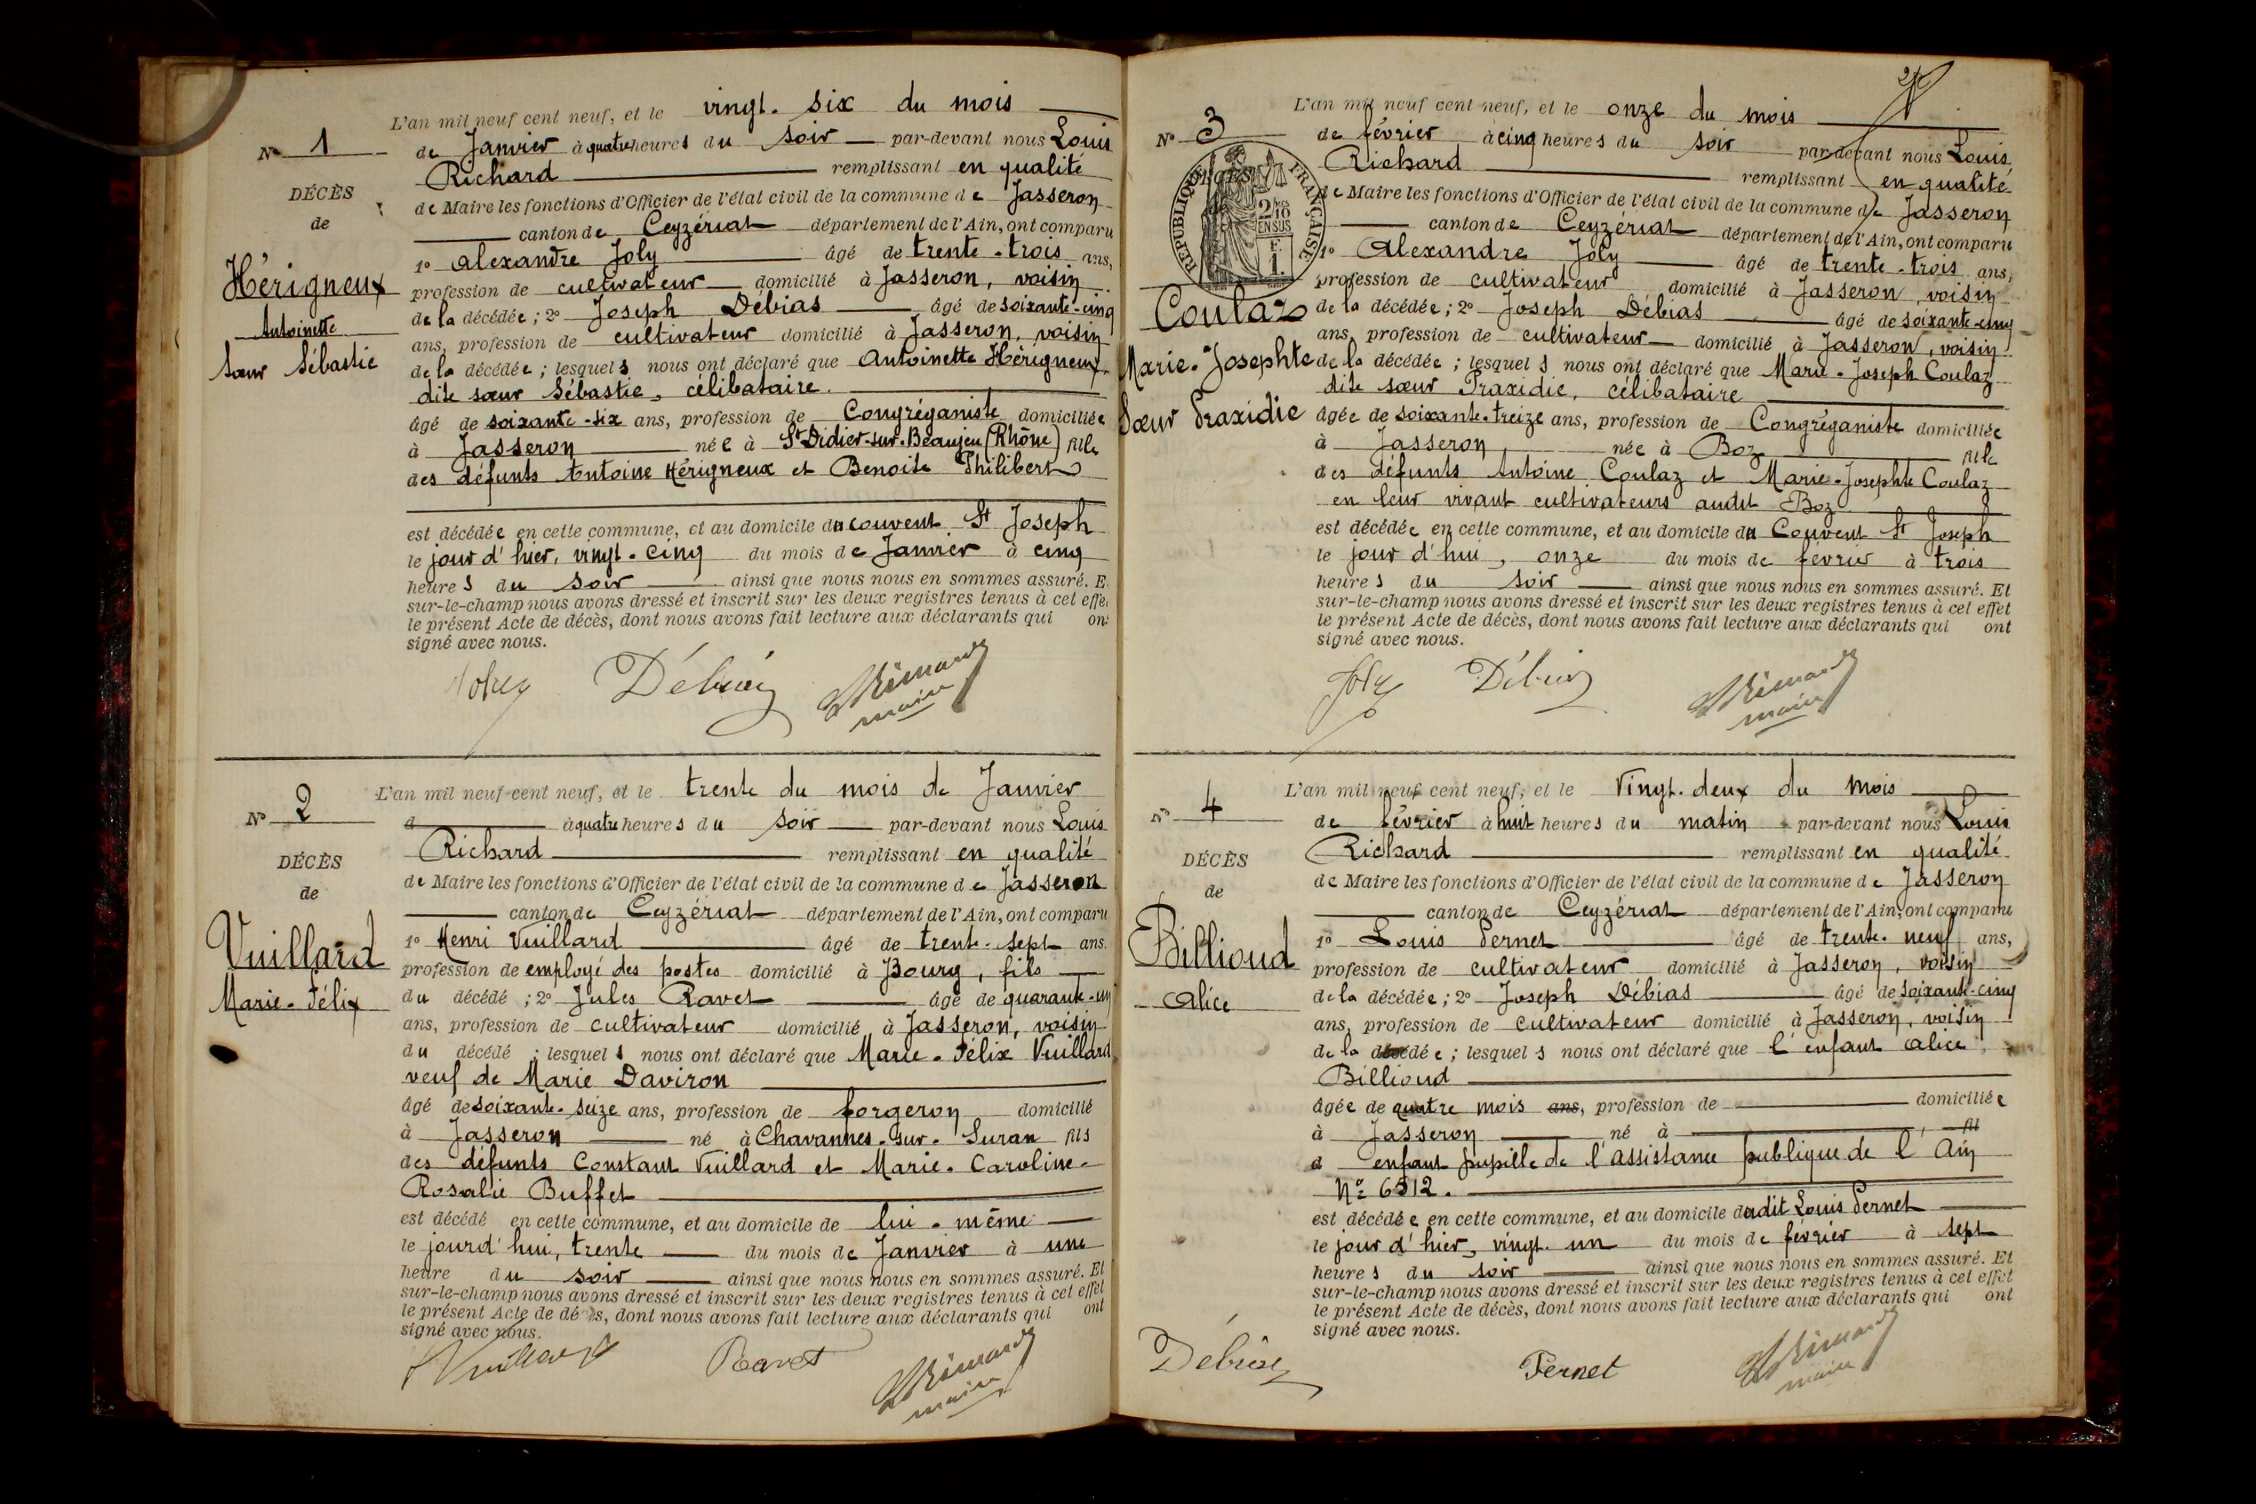 L'an mil neuf cent neuf, et le vingt. six du mois
N° 1
de Janvier à quatre heures du soir par-devant nous Louis
Richard remplissant en qualité
DÉCÈS
de Maire les fonctions d'Officier de l'état civil de la commune de Jasseron
de
canton de Ceyzériat département de l'Ain, ont comparu
1° Alexandre Joly âgé de trente-trois ans,
Hérigneux
profession de cultivateur domicilié à Jasseron, voisin
de la décédée; 2° Joseph Débias âgé de soixante-cinq
Antoinette
ans, profession de cultivateur domicilié à Jasseron, voisin
Sœur Sébastie
de la décédée; lesquels nous ont déclaré que Antoinette Hérigneux
dite sœur Sébastie, célibataire.
âgé de soixante-six ans, profession de Congréganiste domiciliée
à Jasseron née à St Didier-sur-Beaujeu (Rhône) fille
des défunts Antoine Hérigneux et Benoite Philibert
est décédée en cette commune, et au domicile du couvent St Joseph
le jour d'hier, vingt-cinq du mois de Janvier à cinq
heures du soir ainsi que nous nous en sommes assuré. E
sur-le-champ nous avons dressé et inscrit sur les deux registres tenus à cet effe
le présent Acte de décès, dont nous avons fait lecture aux déclarants qui on
signé avec nous.
Débias
maire
L'an mil neuf cent neuf, et le trente du mois de Janvier
N° 2
d à quatre heures du soir par-devant nous Louis
Richard remplissant en qualité
DÉCÈS
de Maire les fonctions d'Officier de l'état civil de la commune de Jasseron
de
canton de Ceyzériat département de l'Ain, ont comparu
1° Henri Vuillard âgé de trente-sept ans.
Vuillard
profession de employé des postes domicilié à Bourg, fils
Marie-Félix
du décédé; 2° Jules Ravet âgé de quarante-un
ans, profession de cultivateur domicilié à Jasseron, voisin
du décédé; lesquels nous ont déclaré que Marie-Félix Vuillard
veuf de Marie Daviron
âgé de soixante-seize ans, profession de forgeron domicilié
à Jasseron né à Chavannes-sur-Suran fils
des défunts Constant Vuillard et Marie-Caroline-
Rosalie Buffet
est décédé en cette commune, et au domicile de lui-même
le jourd'hui, trente du mois de Janvier à une
heure du soir ainsi que nous nous en sommes assuré. Et
sur-le-champ nous avons dressé et inscrit sur les deux registres tenus à cet effet
le présent Acte de décès, dont nous avons fait lecture aux déclarants qui ont
signé avec nous.
Vuillard Ravet
maire
L'an mil neuf cent neuf, et le onze du mois
N° 3
de février à cinq heures du soir par-devant nous Louis
Richard remplissant en qualité
RÉPUBLIQUE FRANÇAISE
de Maire les fonctions d'Officier de l'état civil de la commune de Jasseron
2/10 EN SUS
canton de Ceyzériat département de l'Ain, ont comparu
1° Alexandre Joly âgé de trente-trois ans,
profession de cultivateur domicilié à Jasseron, voisin
Coulaz
de la décédée; 2° Joseph Débias âgé de soixante-cinq
ans, profession de cultivateur domicilié à Jasseron, voisin
Marie-Josephte
de la décédée; lesquels nous ont déclaré que Marie-Joseph Coulaz
dite sœur Praxidie, célibataire
Sœur Praxidie
âgée de soixante-treize ans, profession de Congréganiste domiciliée
à Jasseron née à Boz fille
des défunts Antoine Coulaz et Marie-Josephte Coulaz
en leur vivant cultivateurs audit Boz
est décédée en cette commune, et au domicile du Couvent St Joseph
le jour d'hui, onze du mois de février à trois
heures du soir ainsi que nous nous en sommes assuré. Et
sur-le-champ nous avons dressé et inscrit sur les deux registres tenus à cet effet
le présent Acte de décès, dont nous avons fait lecture aux déclarants qui ont
signé avec nous.
Joly Débias
maire
L'an mil neuf cent neuf, et le Vingt-deux du mois
N° 4
de février à huit heures du matin par-devant nous Louis
Richard remplissant en qualité
DÉCÈS
de Maire les fonctions d'Officier de l'état civil de la commune de Jasseron
de
canton de Ceyzériat département de l'Ain, ont comparu
1° Louis Pernet âgé de trente-neuf ans,
Billioud
profession de cultivateur domicilié à Jasseron, voisin
Alice
de la décédée; 2° Joseph Débias âgé de soixante-cinq
ans, profession de cultivateur domicilié à Jasseron, voisin
de la décédée; lesquels nous ont déclaré que l'enfant Alice
Billioud
âgée de quatre mois ans, profession de domiciliée
à Jasseron né à fil
d enfant pupille de l'assistance publique de l'Ain
N° 6312.
est décédée en cette commune, et au domicile dudit Louis Pernet
le jour d'hier, vingt-un du mois de février à sept
heures du soir ainsi que nous nous en sommes assuré. Et
sur-le-champ nous avons dressé et inscrit sur les deux registres tenus à cet effet
le présent Acte de décès, dont nous avons fait lecture aux déclarants qui ont
signé avec nous.
Débias Pernet
maire